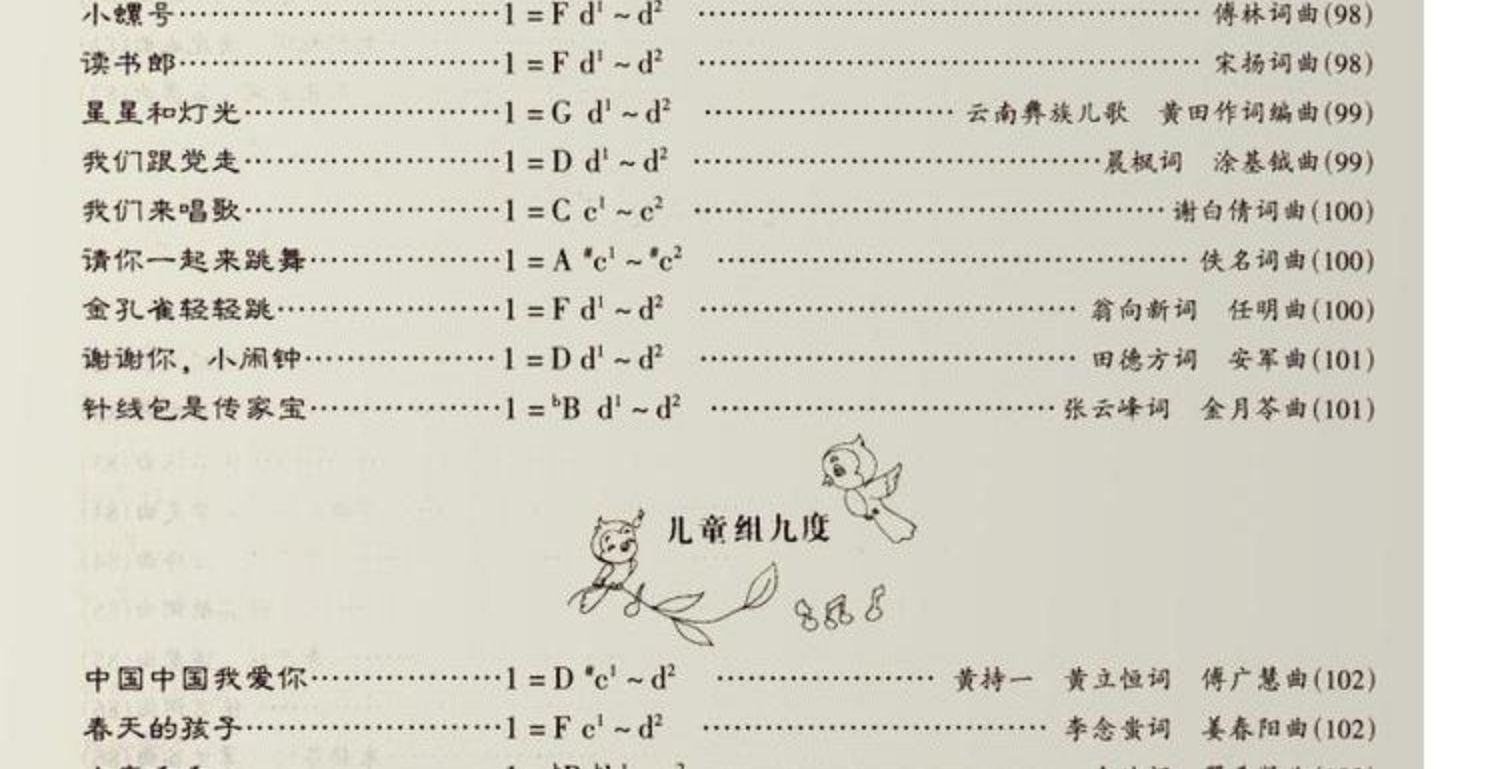 小螺号……………………………1 = F d¹ ~ d² ……………………………………………… 傅林词曲(98)
读书郎……………………………1 = F d¹ ~ d² ……………………………………………… 宋扬词曲(98)
星星和灯光………………………1 = G d¹ ~ d² ……………………… 云南彝族儿歌 黄田作词编曲(99)
我们跟党走………………………1 = D d¹ ~ d² ……………………………………晨枫词 涂基钺曲(99)
我们来唱歌………………………1 = C c¹ ~ c² ………………………………………… 谢白倩词曲(100)
请你一起来跳舞…………………1 = A #c¹ ~ #c² ………………………………………… 佚名词曲(100)
金孔雀轻轻跳……………………1 = F d¹ ~ d² ………………………………… 翁向新词 任明曲(100)
谢谢你，小闹钟………………… 1 = D d¹ ~ d² ………………………………… 田德方词 安军曲(101)
针线包是传家宝…………………1 = ᵇB d¹ ~ d² ………………………………张云峰词 金月苓曲(101)
儿童组九度
中国中国我爱你…………………1 = D #c¹ ~ d² ………………… 黄持一 黄立恒词 傅广慧曲(102)
春天的孩子………………………1 = F c¹ ~ d² ……………………………… 李念蚩词 姜春阳曲(102)